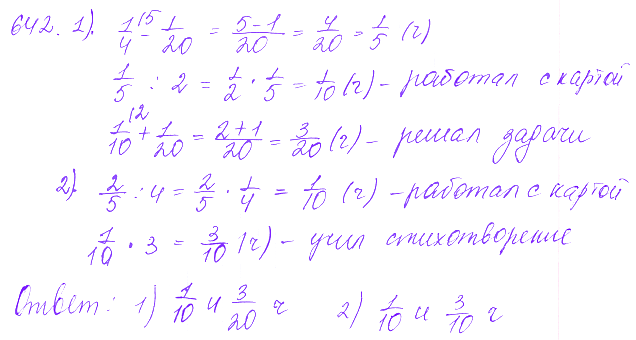 642. 1). 1/4 \5 - 1/20 = 5-1/20 = 4/20 = 1/5 (ч)
1/5 : 2 = 1/2 · 1/5 = 1/10 (ч) - работал с картой
1/10 \2 + 1/20 = 2+1/20 = 3/20 (ч) - решал задачи
2). 2/5 : 4 = 2/5 · 1/4 = 1/10 (ч) - работал с картой
1/10 · 3 = 3/10 (ч) - учил стихотворение
Ответ: 1) 1/10 и 3/20 ч 2) 1/10 и 3/10 ч